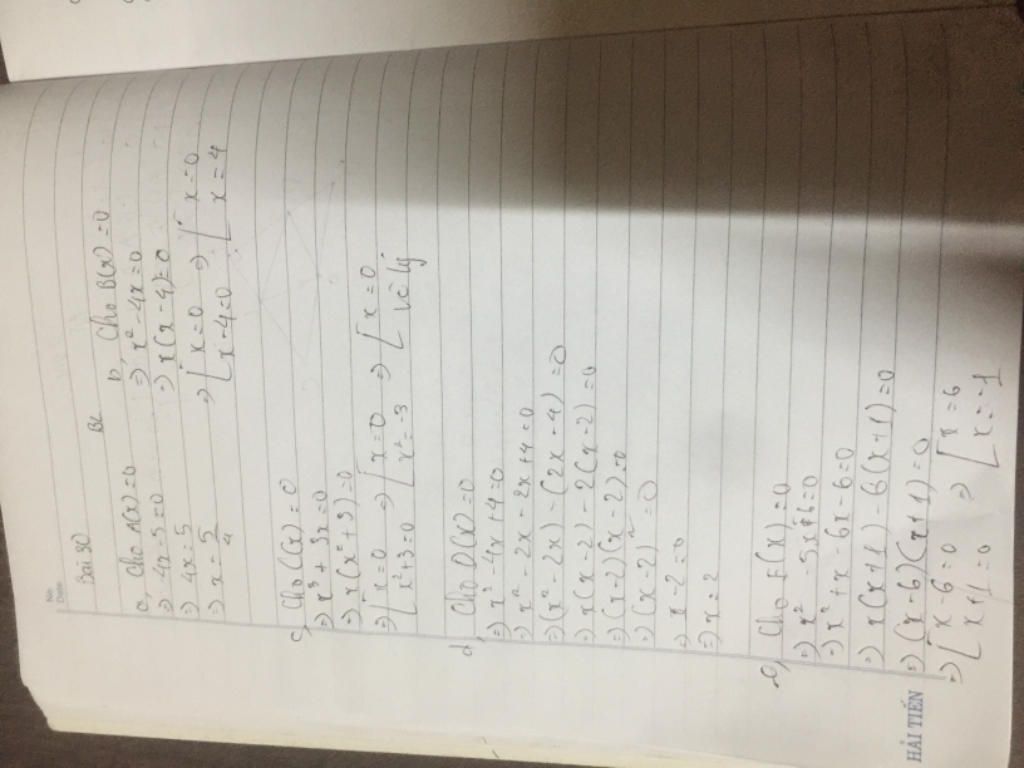 No.
Date
Bài 30
BL
a, Cho A(x) = 0
⇒ 4x - 5 = 0
⇒ 4x = 5
⇒ x = 5/4
b, Cho B(x) = 0
⇒ x² - 4x = 0
⇒ x(x - 4) = 0
⇒ [ x = 0 ⇒ [ x = 0
x - 4 = 0 x = 4
c, Cho C(x) = 0
⇒ x³ + 3x = 0
⇒ x(x² + 3) = 0
⇒ [ x = 0 ⇒ [ x = 0 ⇒ [ x = 0
x² + 3 = 0 x² = -3 vô lý
d, Cho D(x) = 0
⇒ x² - 4x + 4 = 0
⇒ x² - 2x - 2x + 4 = 0
⇒ (x² - 2x) - (2x - 4) = 0
⇒ x(x - 2) - 2(x - 2) = 0
⇒ (x - 2)(x - 2) = 0
⇒ (x - 2)² = 0
⇒ x - 2 = 0
⇒ x = 2
e, Cho E(x) = 0
⇒ x² - 5x 6 = 0
⇒ x² + x - 6x - 6 = 0
⇒ x(x + 1) - 6(x + 1) = 0
⇒ (x - 6)(x + 1) = 0
⇒ [ x - 6 = 0 ⇒ [ x = 6
x + 1 = 0 x = -1
HẢI TIẾN